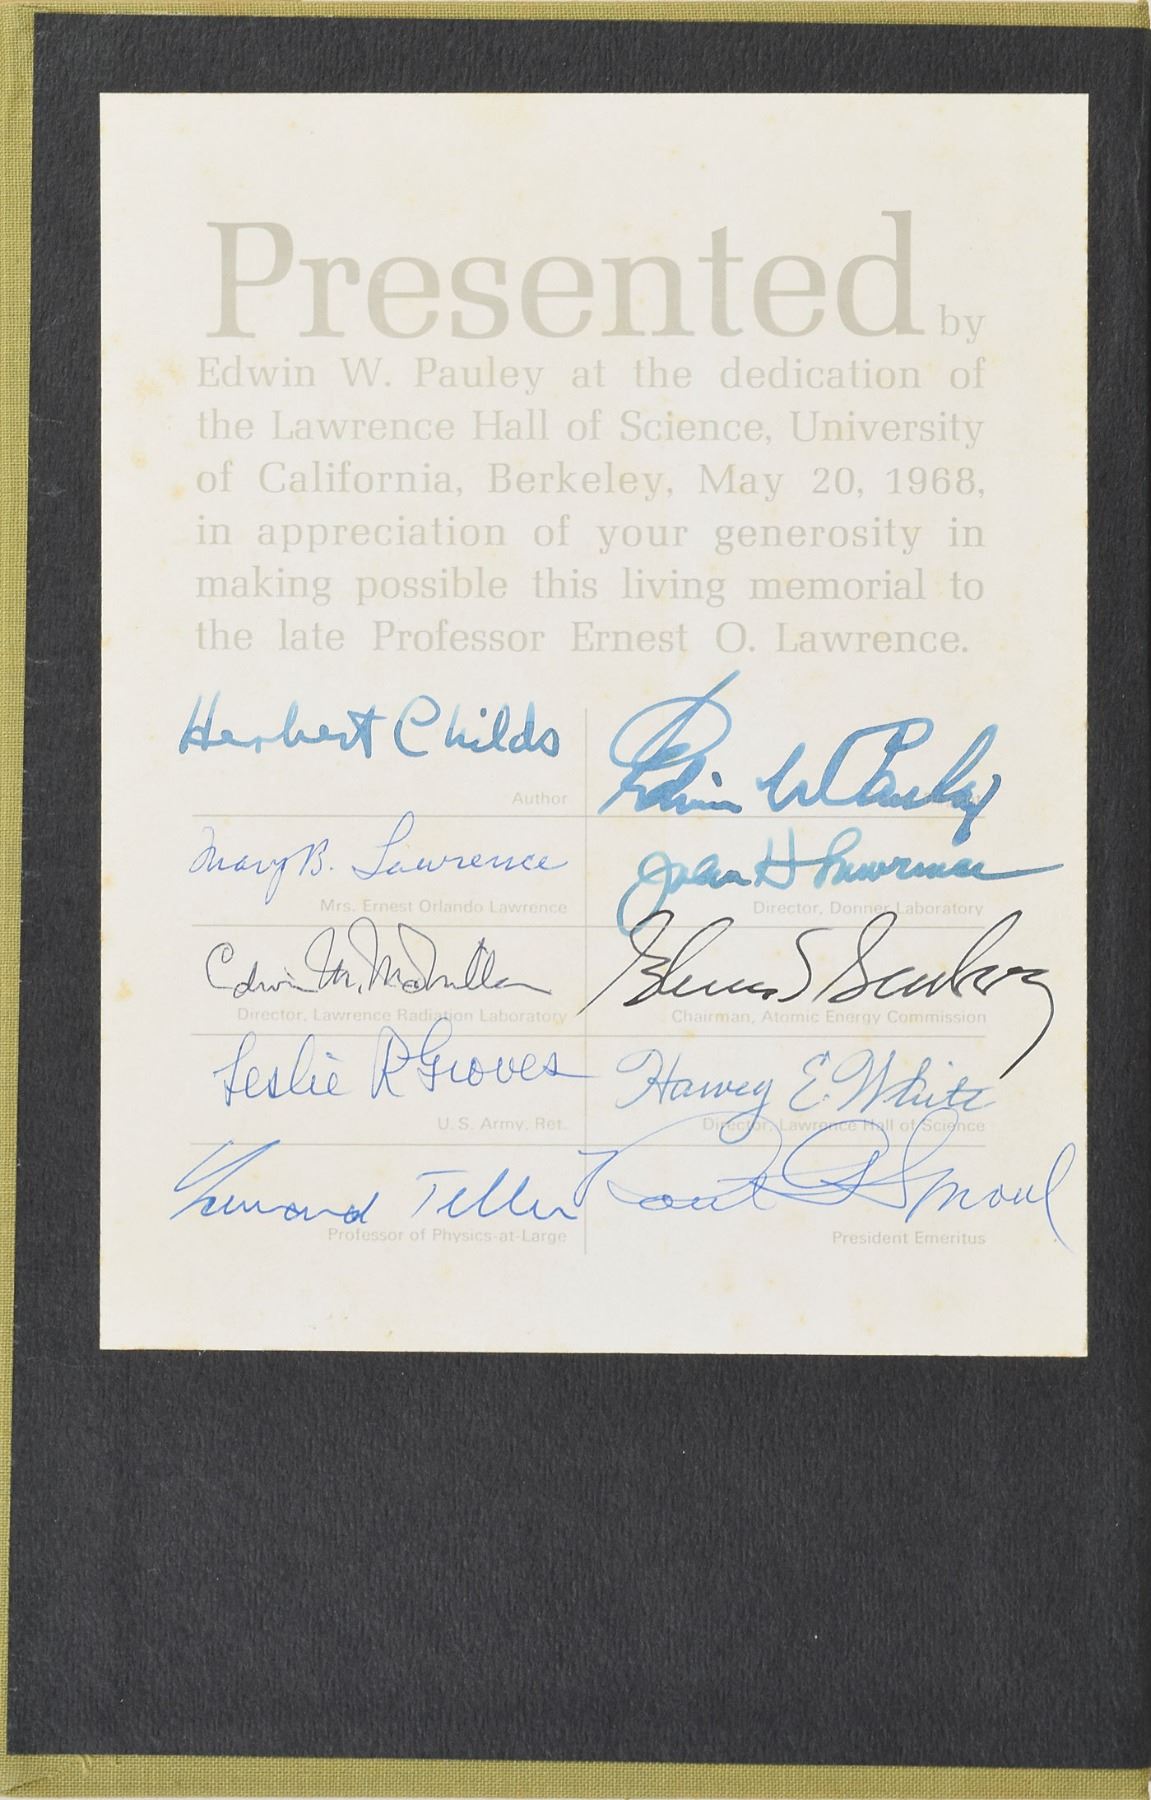 Presented by
Edwin W. Pauley at the dedication of
the Lawrence Hall of Science, University
of California, Berkeley, May 20, 1968,
in appreciation of your generosity in
making possible this living memorial to
the late Professor Ernest O. Lawrence.
Herbert Childs
Author
Edwin W Pauley
Mary B. Lawrence
Mrs. Ernest Orlando Lawrence
John H Lawrence
Director, Donner Laboratory
Edwin M. McMillan
Director, Lawrence Radiation Laboratory
Glenn T Seaborg
Chairman, Atomic Energy Commission
Leslie R Groves
U.S. Army, Ret.
Harvey E. White
Director, Lawrence Hall of Science
Edward Teller
Professor of Physics-at-Large
Robert G Sproul
President Emeritus